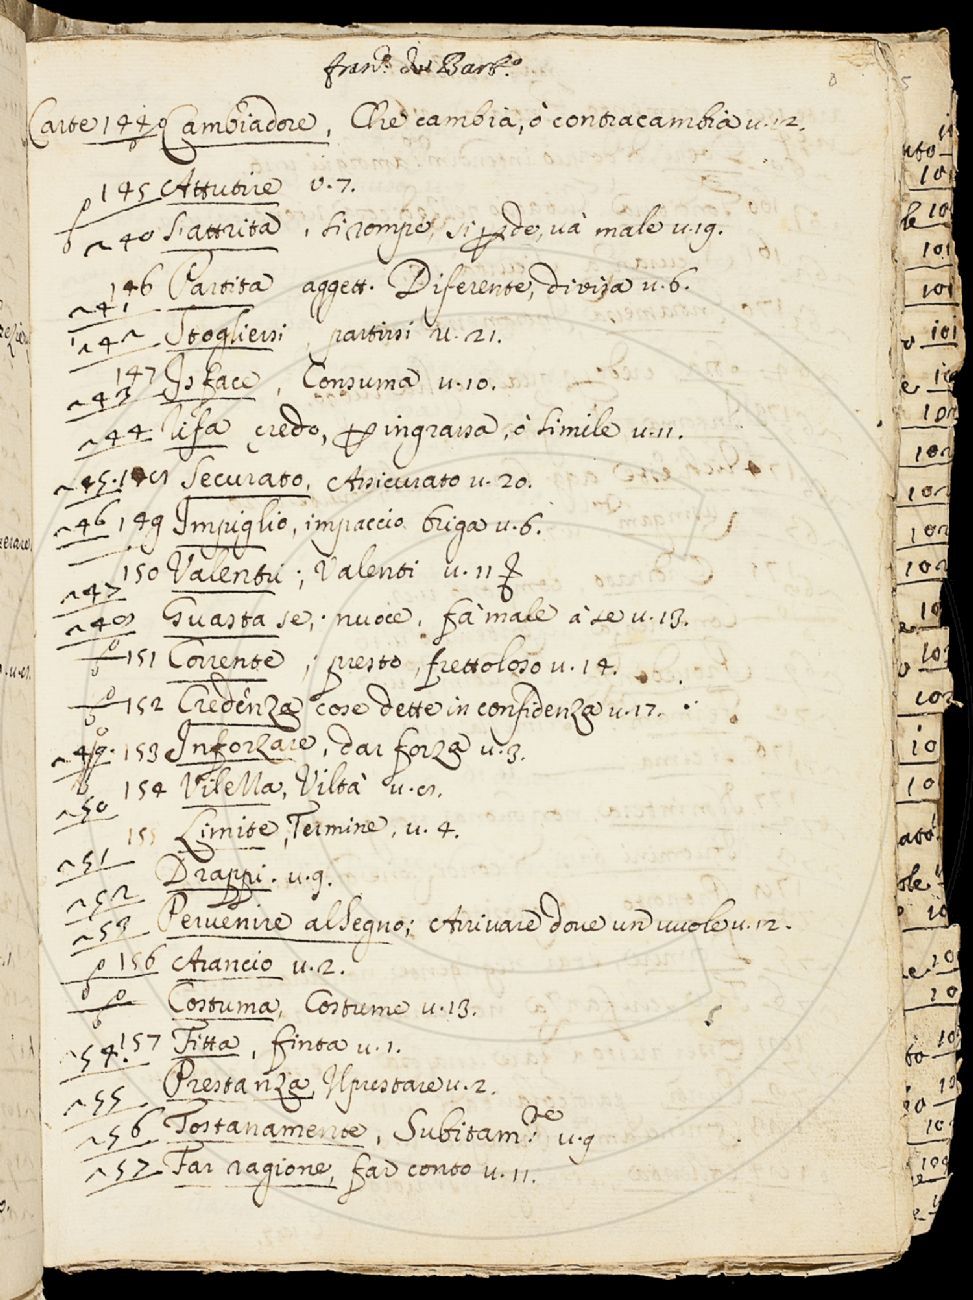 fran.º da Barb.º
Carte 144 Cambiadore, Che cambia, ò contracambia u.12.
145 Attutire v.7.
~40 S'attrita, si rompe, si perde, uà male u.19.
146 Partita aggett. Diferente, divisa u.6.
~41
~42 Stogliersi, partirsi u.21.
147 Isface, Consuma u.10.
~43
~44 Usa credo, per ingrassa, ò simile u.11.
~45. 148 Securato, Assicurato u.20.
~46 149 Impiglio, impaccio briga u.6.
150 Valentri; Valenti u.11
~47
~48 Guasta se; nuoce, fà male à se u.13.
151 Corrente; presto, frettoloso u.14.
152 Credenza cose dette in confidenza u.17.
~49. 153 Inforzare, dar forza u.3.
154 Vilella, Viltà u.8.
~50
155 Limite, Termine, u.4.
~51
Drappi. u.9.
~52
~53 Pervenire al segno; Arrivare dove un vuole u.12.
156 Arancio u.2.
Costuma, Costume u.13.
~54. 157 Fitta, finta u.1.
~55 Prestanza, Il prestare u.2.
~56 Tostanamente, Subitam.te u.9
~57 Far ragione, far conto u.11.